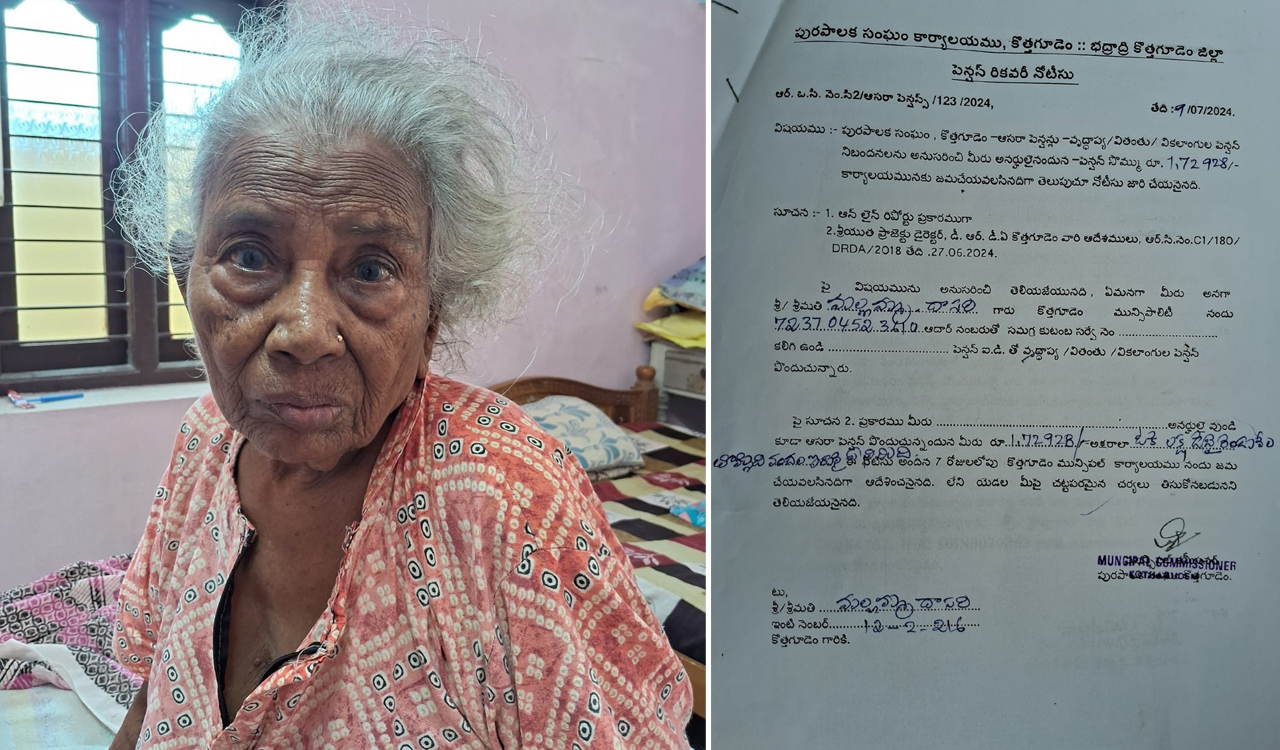 పురపాలక సంఘం కార్యాలయము, కొత్తగూడెం :: భద్రాద్రి కొత్తగూడెం జిల్లా
పెన్షన్ రికవరీ నోటీసు
ఆర్. ఒ.సి. నెం.సి2/ఆసరా పెన్షన్స్ /123 /2024,
తేది :9/07/2024.
విషయము :- పురపాలక సంఘం , కొత్తగూడెం –ఆసరా పెన్షన్లు –వృద్ధాప్య/వితంతు/ వికలాంగుల పెన్షన్
నిబందనలను అనుసరించి మీరు అనర్హులైనందున –పెన్షన్ సొమ్ము రూ. 1,72928/-
కార్యాలయమునకు జమచేయవలసినదిగా తెలుపుచూ నోటీసు జారి చేయనైనది.
సూచన :- 1. ఆన్ లైన్ రిపోర్టు ప్రకారముగా
2.శ్రీయుత ప్రాజెక్టు డైరెక్టర్, డీ. ఆర్. డీ.ఏ కొత్తగూడెం వారి ఆదేశములు, ఆర్.సి.నెం.C1/180/
DRDA/2018 తేది .27.06.2024.
పై విషయమును అనుసరించి తెలియజేయునది , ఏమనగా మీరు అనగా
శ్రీ/ శ్రీమతి మల్లమ్మ దాసరి గారు కొత్తగూడెం మున్సిపాలిటీ నందు
7237 0452 ఆదార్ నంబరుతో సమగ్ర కుటుంబ సర్వే నెం ........................
కలిగి ఉండి ............................... పెన్షన్ ఐ.డి. తో వృద్ధాప్య /వితంతు /వికలాంగుల పెన్షన్
పొందుచున్నారు.
పై సూచన 2. ప్రకారము మీరు ............................................................అనర్హులై వుండి
కూడా ఆసరా పెన్షన్ పొందుచున్నందున మీరు రూ.1,72928/-అక్షరాలా. ఒక లక్ష డెబ్బై రెండు వేల
తొమ్మిది వందల ఇరువై ఎనిమిది ఈ నోటీసు అందిన 7 రోజులలోపు కొత్తగూడెం మున్సిపల్ కార్యాలయము నందు జమ
చేయవలసినదిగా ఆదేశించనైనది. లేని యెడల మీపై చట్టపరమైన చర్యలు తీసుకోనబడునని
తెలియజేయనైనది.
MUNCIPAL COMMISSIONER
పురపాలక కొత్తగూడెం.
టు,
శ్రీ/శ్రీమతి మల్లమ్మ దాసరి
ఇంటి నెంబర్ 12-2-216
కొత్తగూడెం గారికి.